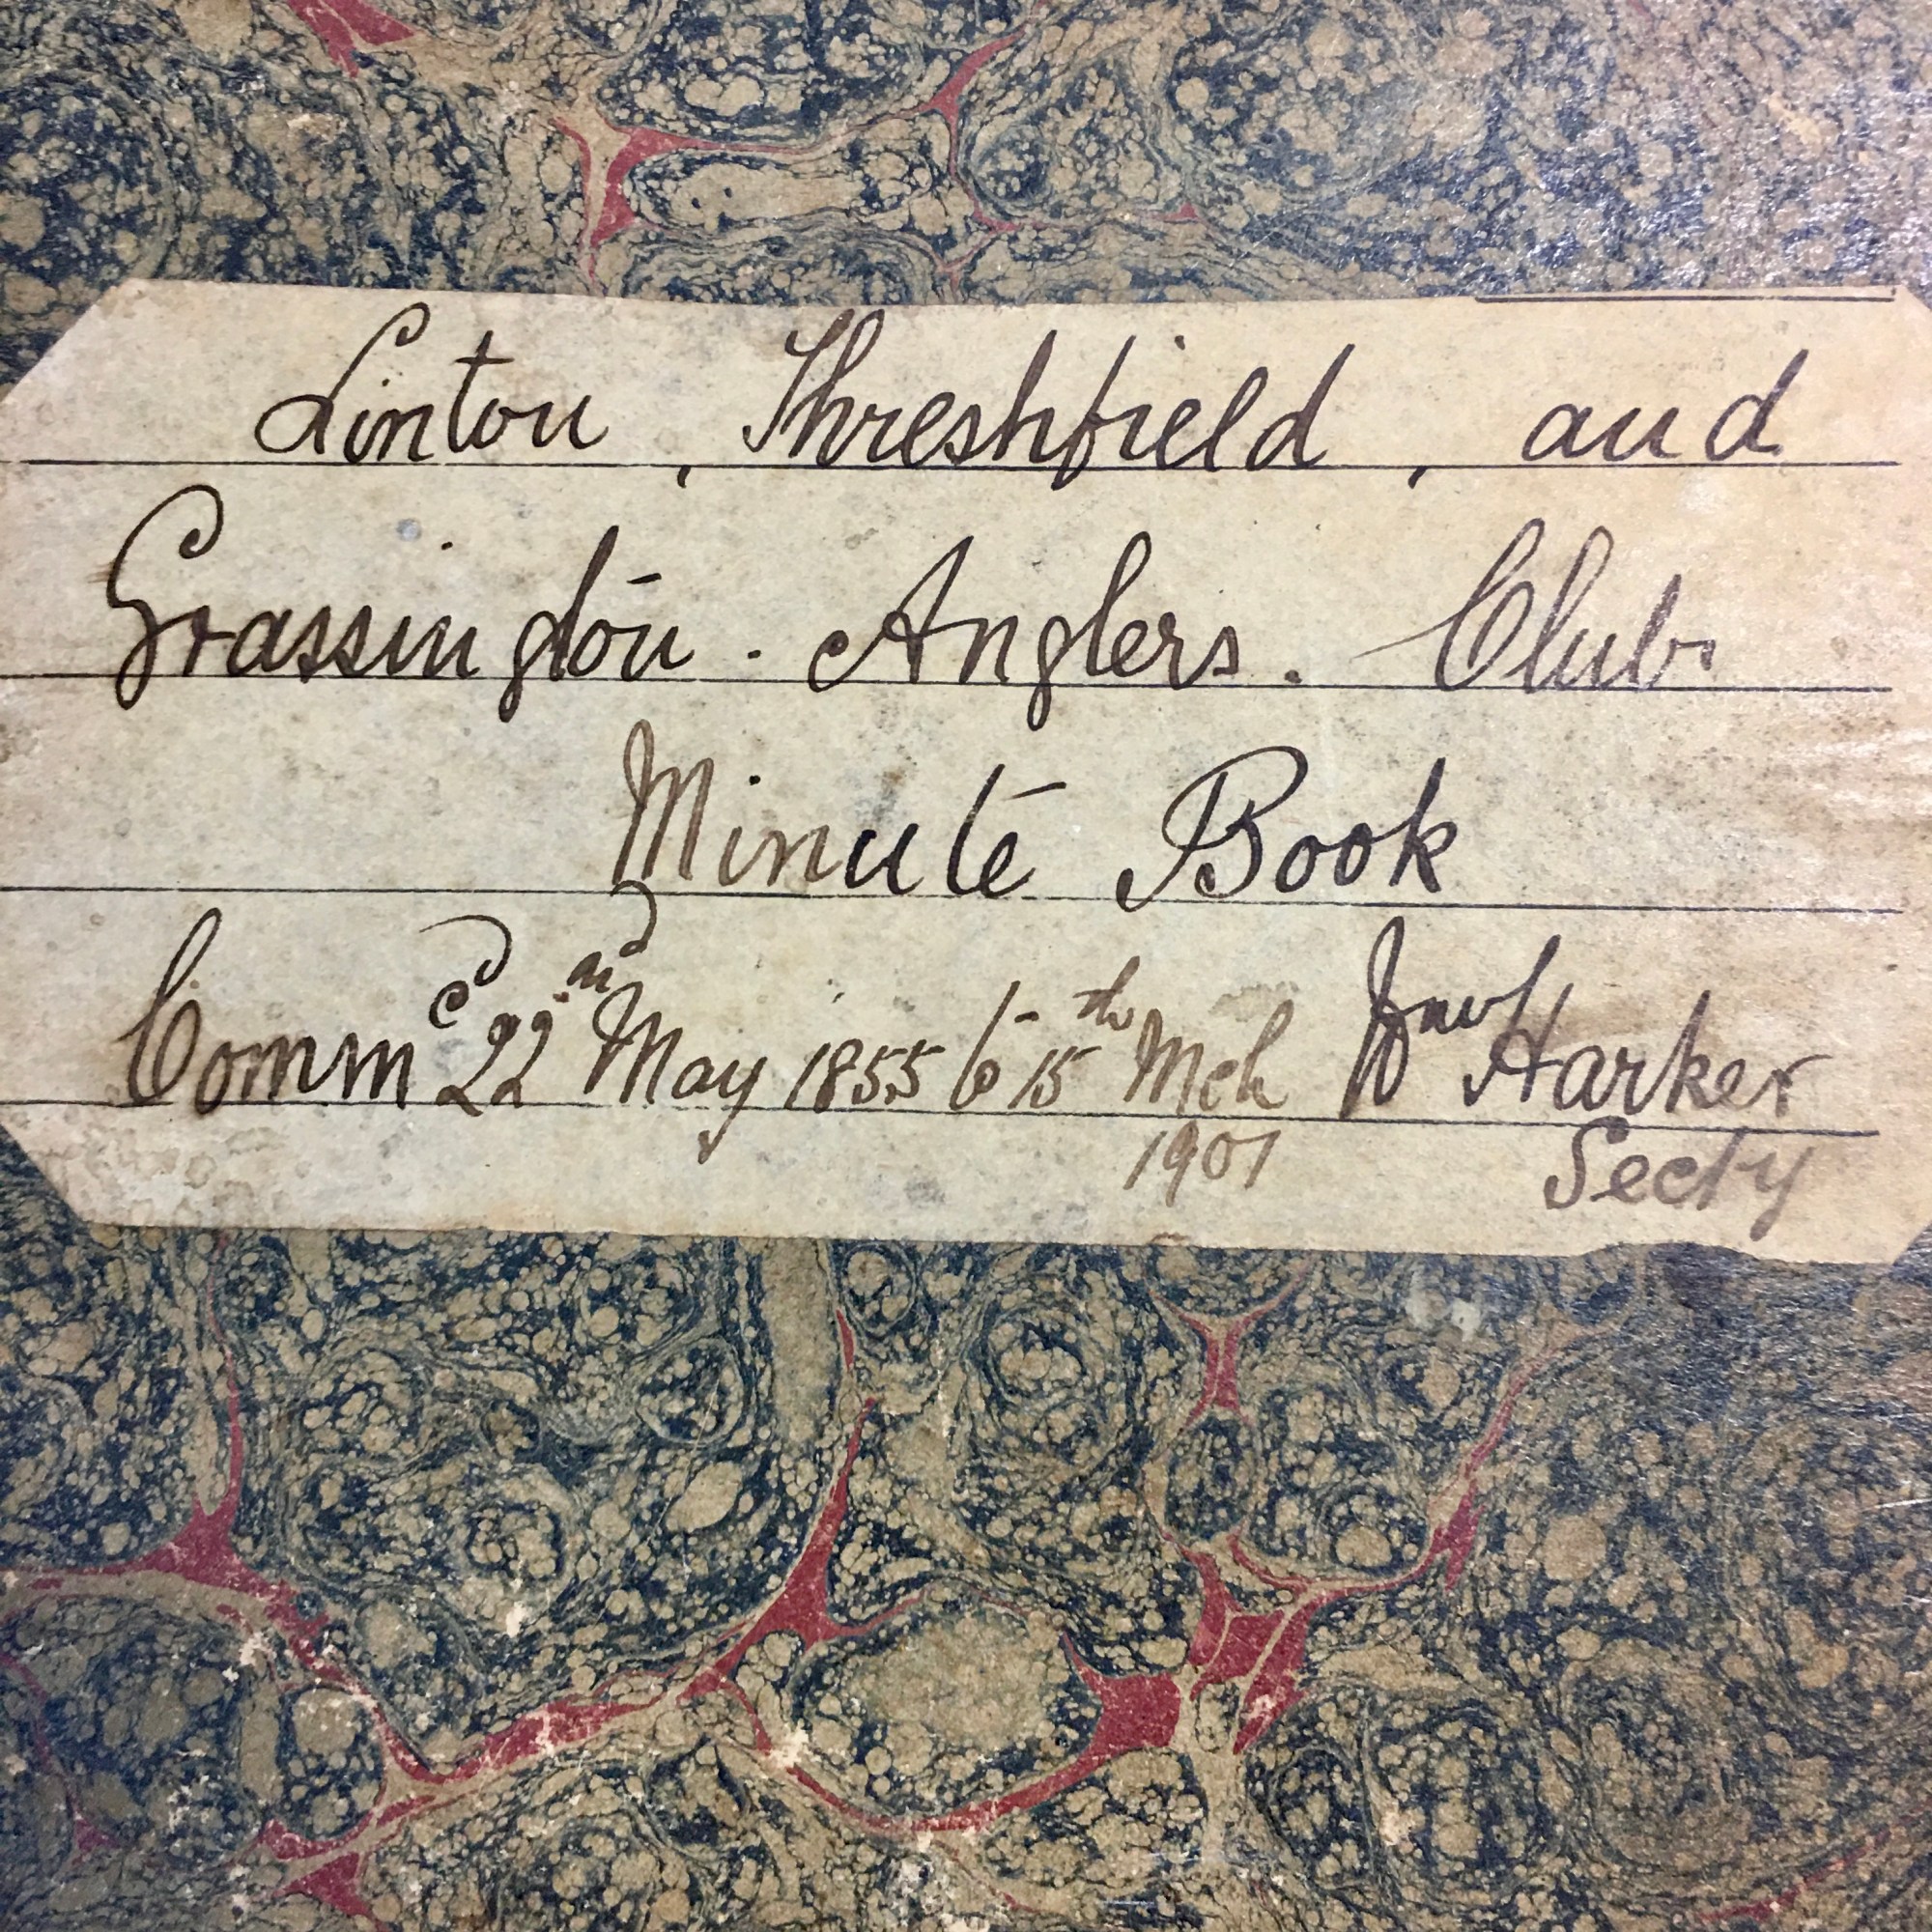 Linton, Threshfield, and
Grassington. Anglers. Club
Minute Book
Commcd 22nd May 1855 to 15th Mch Jno Harker
1901 Secty